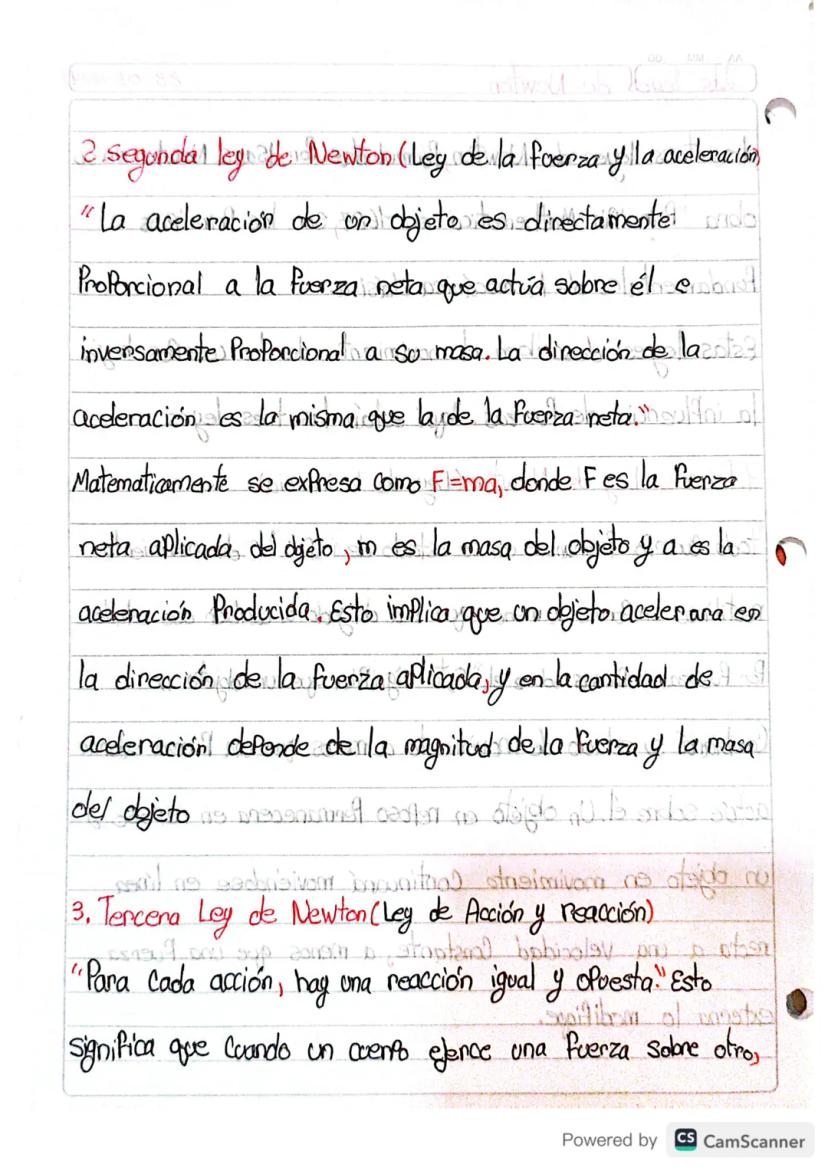 2. Segunda ley de Newton (Ley de la fuerza y la aceleración)
"La aceleración de un objeto es directamente
Proporcional a la fuerza neta que actúa sobre él e
inversamente Proporcional a su masa. La dirección de la
aceleración es la misma que la de la fuerza neta."
Matematicamente se expresa como F=ma, donde F es la fuerza
neta aplicada del objeto, m es la masa del objeto y a es la
aceleración Producida. Esto implica que un objeto acelerara en
la dirección de la fuerza aplicada, y en la cantidad de
aceleración depende de la magnitud de la fuerza y la masa
del objeto
3. Tercera Ley de Newton (Ley de Acción y reacción)
"Para cada acción, hay una reacción igual y opuesta." Esto
significa que cuando un cuerpo ejerce una fuerza sobre otro,
Powered by CS CamScanner